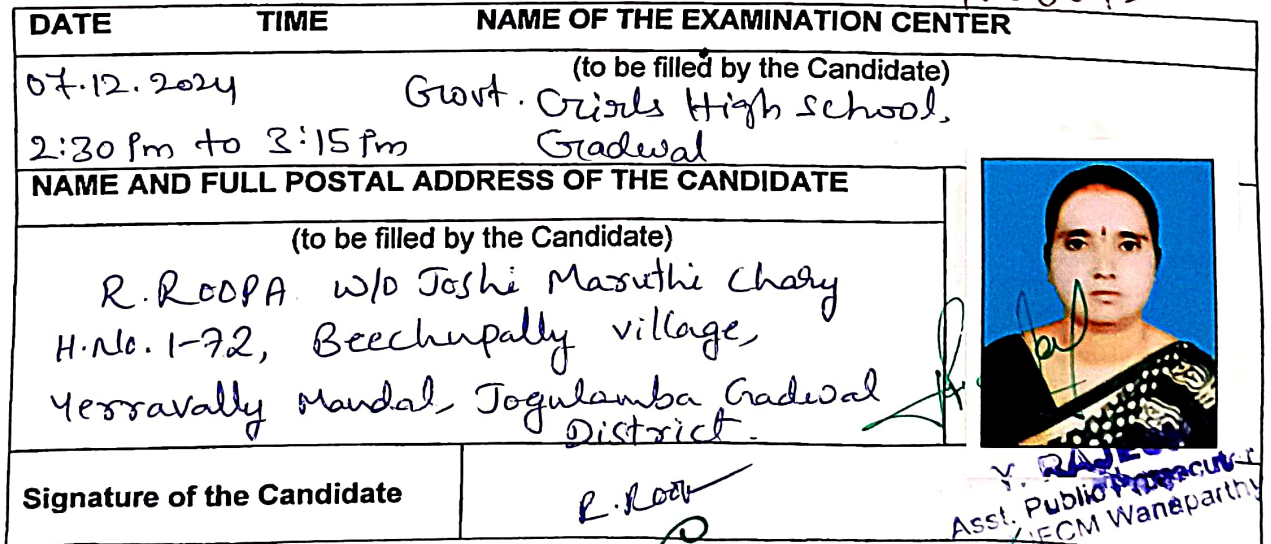 DATE TIME NAME OF THE EXAMINATION CENTER
(to be filled by the Candidate)
07.12.2024 Govt. Girls High School,
2:30 Pm to 3:15 Pm Gadwal
NAME AND FULL POSTAL ADDRESS OF THE CANDIDATE
(to be filled by the Candidate)
R. ROOPA W/O Joshi Maruthi Chary
H.No. 1-72, Beechupally village,
Yerravally Mandal, Jogulamba Gadwal
District.
Signature of the Candidate R. Roopa
Y. RAJESH
Asst. Public Prosecutor
JFCM Wanaparthy